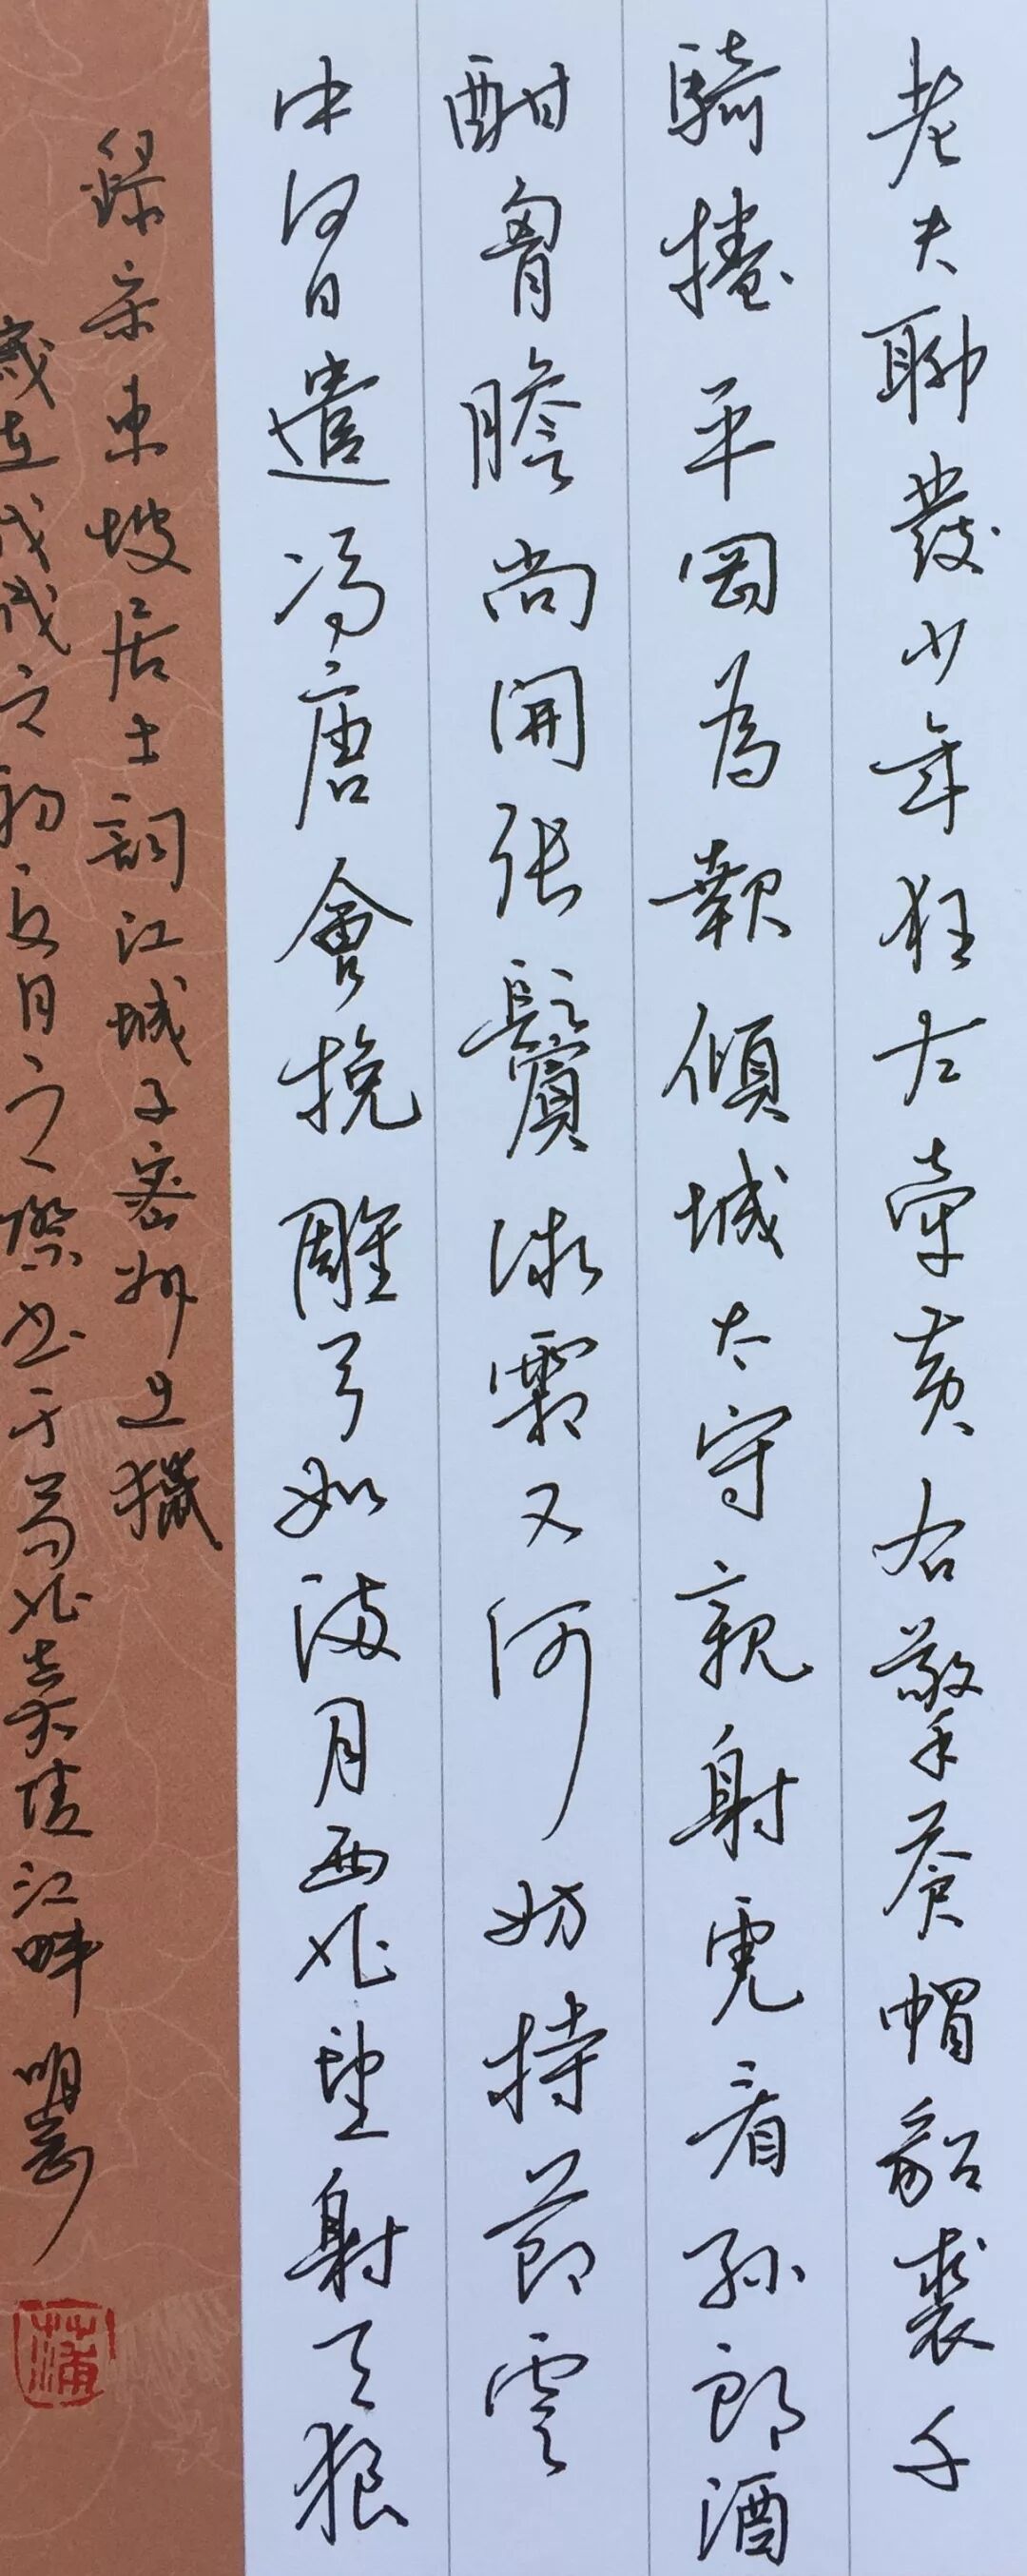 老夫聊發少年狂左牽黄右擎蒼帽貂裘千
騎捲平岡為報傾城太守親射虎看孫郎酒
酣胷膽尚開張鬢微霜又何妨持節雲
中何日遣馮唐會挽雕弓如滿月西北望射天狼
録宋東坡居士詞江城子密州出獵
歲在戊戌之初夏月之際書于蜀北嘉陵江畔明
蒲